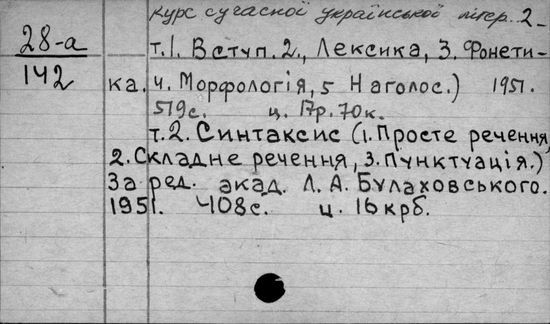 Курс сучасної української літер. 2-
28-а
142
т.1. Вступ. 2., Лексика, 3. Фонети-
ка. 4. Морфологія, 5 Наголос.) 1951.
519с. ц. 17р. 70к.
т.2. Синтаксис (1. Просте речення,
2. Складне речення, 3. Пунктуація.)
За ред. акад. Л. А. Булаховського.
1951. 408с. ц. 16крб.